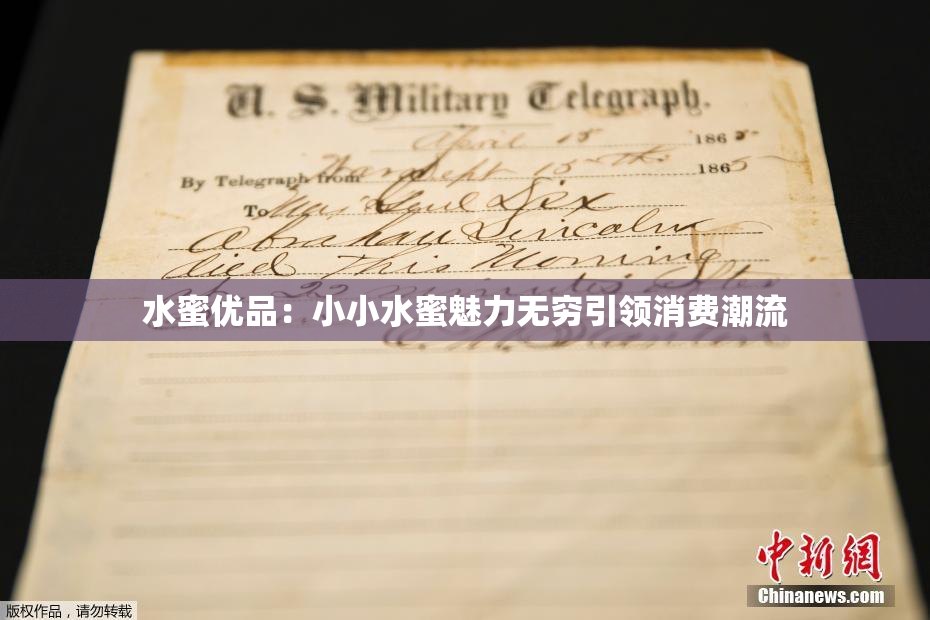 U. S. Military Telegraph.
April 15 1865
By Telegraph from War Dept 15th 1865
To Maj Genl Dix
Abraham Lincoln
died This Morning
at 22 minutes after
水蜜优品：小小水蜜魅力无穷引领消费潮流
E. M. Stanton
中新網
Chinanews.com
版权作品，请勿转载